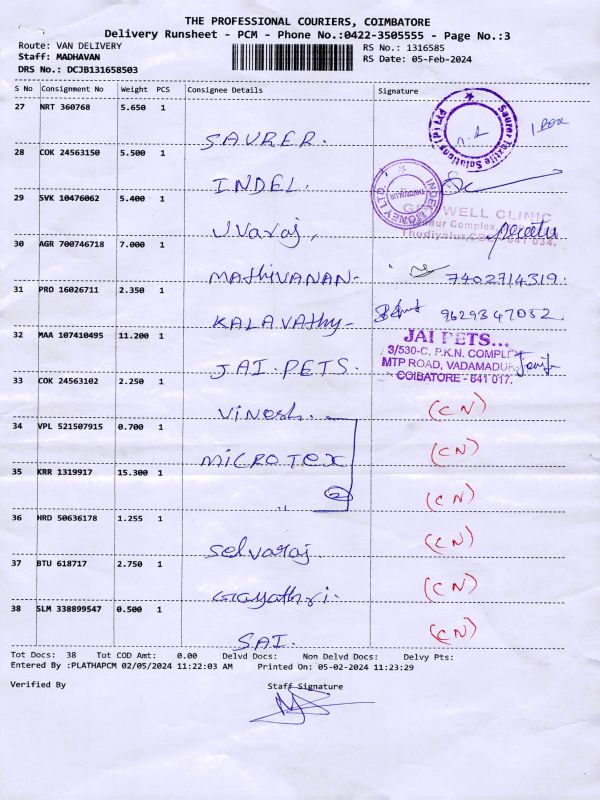 THE PROFESSIONAL COURIERS, COIMBATORE
Delivery Runsheet - PCM - Phone No.:0422-3505555 - Page No.:3
Route: VAN DELIVERY
RS No.: 1316585
Staff: MADHAVAN
RS Date: 05-Feb-2024
DRS No.: DCJB131658503
S No Consignment No Weight PCS Consignee Details Signature
27 NRT 360768 5.650 1
SAURER.
Saurer Textile Solutions (P) LTD
1 Box
28 COK 24563150 5.500 1
INDEL.
INDEL MONEY LTD
29 SVK 10476062 5.400 1
UVaraj,
WELL CLINIC
Thudiyalur, 641 034.
30 AGR 700746718 7.000 1
MAthiVANAN- 7402714319.
31 PRO 16026711 2.350 1
KALAVAthy- 9629347032.
32 MAA 107410495 11.200 1
JAI.PETS.
JAI PETS...
3/530-C, P.K.N. COMPLEX
MTP ROAD, VADAMADU
COIBATORE - 641 017.
33 COK 24563102 2.250 1
Vinosh. (CN)
34 VPL 521507915 0.700 1
MICROTEX (CN)
35 KRR 1319917 15.300 1
,, (CN)
36 HRD 50636178 1.255 1
Selvaraj. (CN)
37 BTU 618717 2.750 1
Gayathri. (CN)
38 SLM 338899547 0.500 1
SAI. (CN)
Tot Docs: 38 Tot COD Amt: 0.00 Delvd Docs: Non Delvd Docs: Delvy Pts:
Entered By :PLATHAPCM 02/05/2024 11:22:03 AM Printed On: 05-02-2024 11:23:29
Verified By Staff Signature